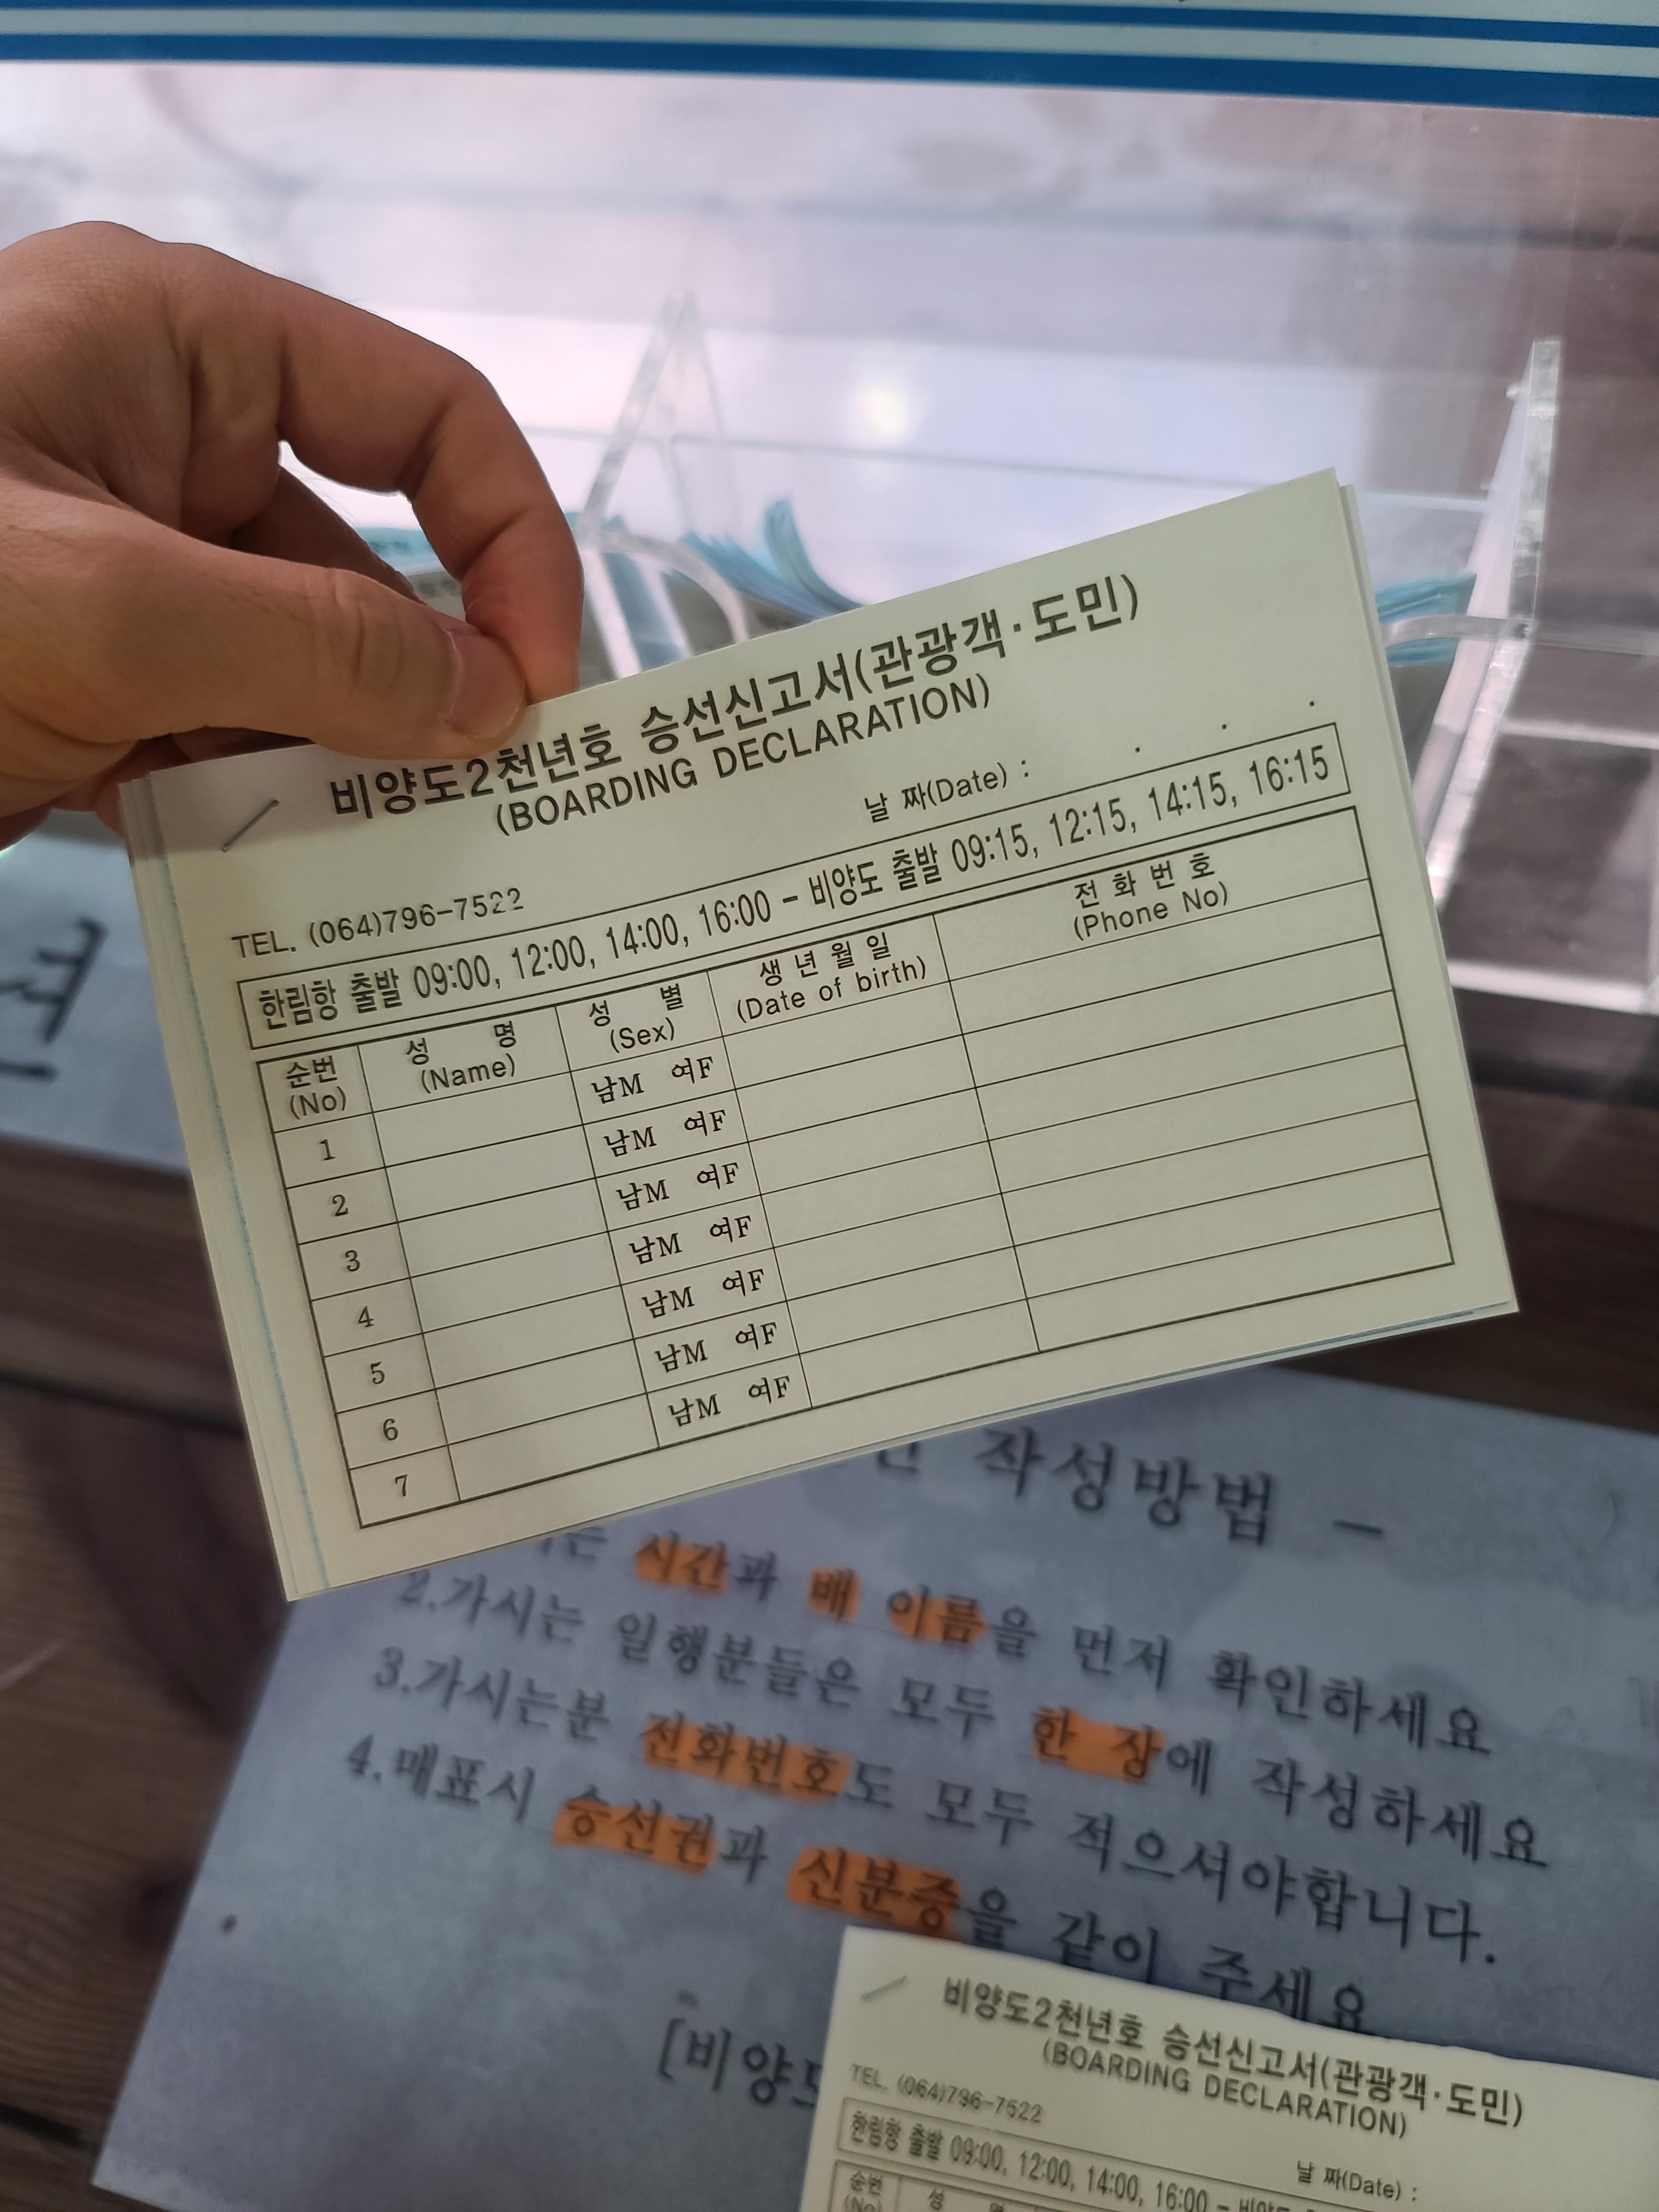 비양도2천년호 승선신고서(관광객·도민)
(BOARDING DECLARATION)
날 짜(Date) : . . .
TEL. (064)796-7522
한림항 출발 09:00, 12:00, 14:00, 16:00 - 비양도 출발 09:15, 12:15, 14:15, 16:15
순번 성 명 성 별 생 년 월 일 전 화 번 호
(No) (Name) (Sex) (Date of birth) (Phone No)
1 남M 여F
2 남M 여F
3 남M 여F
4 남M 여F
5 남M 여F
6 남M 여F
7 남M 여F
작성방법 -
시간과 배 이름을 먼저 확인하세요
2.가시는 일행분들은 모두 한 장에 작성하세요
3.가시는분 전화번호도 모두 적으셔야합니다.
4.매표시 승선권과 신분증을 같이 주세요
[비양도
비양도2천년호 승선신고서(관광객·도민)
(BOARDING DECLARATION)
TEL. (064)796-7522
날 짜(Date) :
한림항 출발 09:00, 12:00, 14:00, 16:00 - 비양도
순번 성 명
(No)